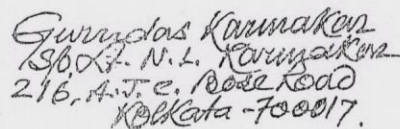 Gurudas Karmakar
S/o. Lt. N.L. Karmakar
216, A.J.C. Bose Road
Kolkata-700017.